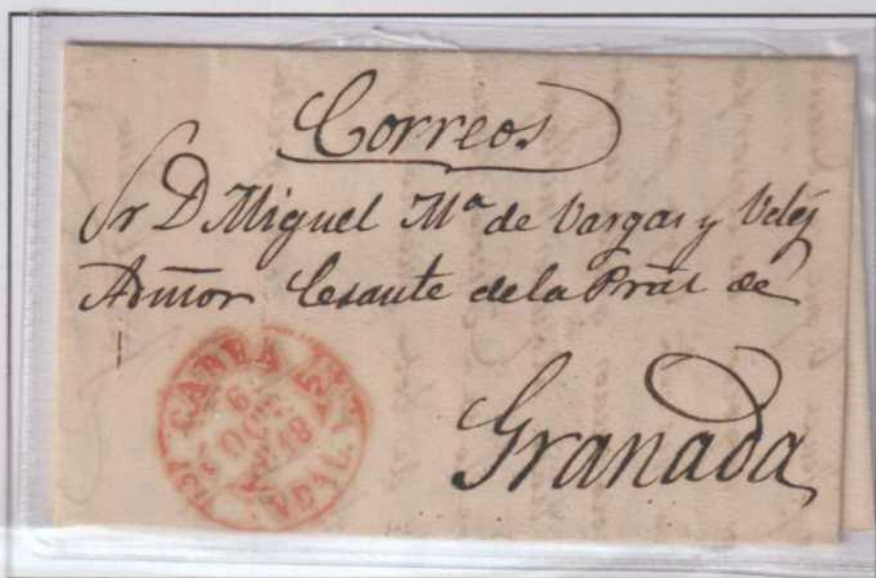 Correos
Sr D Miguel Mª de Vargas y Velez
Admor Cesante de la Pral de
Granada
CABRA
6
OCT